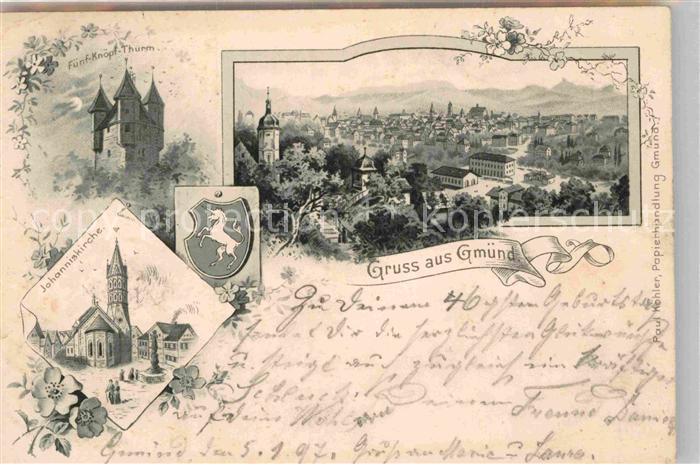 Fünf-Knopf-Thurm.
Johanniskirche.
Gruss aus Gmünd
Paul Köhler, Papierhandlung Gmünd.
Zu Deinem 46 gsten Geburtstag
sendet Dir die herzlichsten Glückwünsche
u. steigt auf zugleich ein kräftiger
Schluck
auf dein Wohl
Gmünd, den 5.1.97. Grüße an Marie u. Laura.